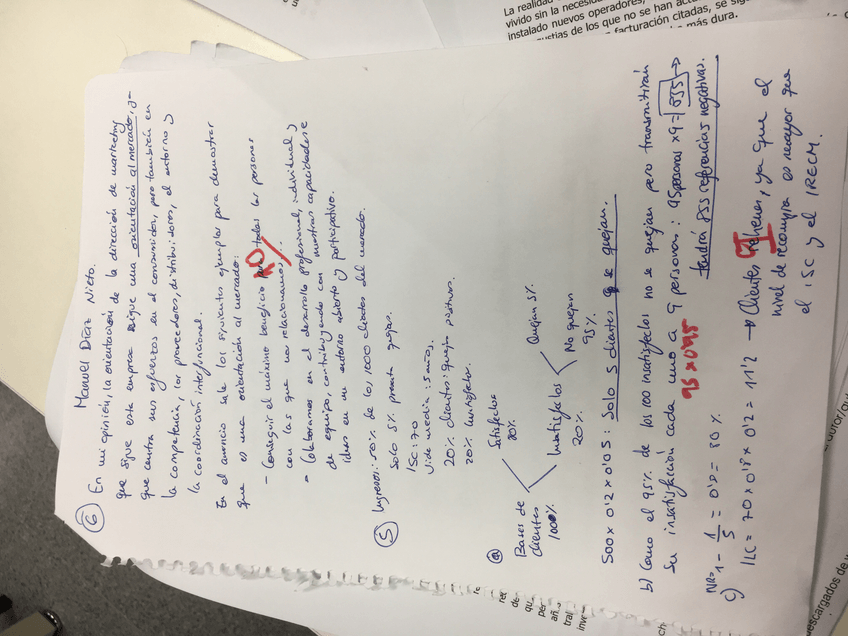 La realidad
vivido sin la necesid
instalado nuevos operadores,
ustias de los que no se han
facturación citadas, se
más dura.
Manuel Díaz Nieto.
6 En mi opinión, la orientación de la dirección de marketing
que sigue esta empresa sigue una orientación al mercado, ya
que centra sus esfuerzos en el consumidor, pero también en
la competencia, los proveedores, distribuidores, el entorno y
la coordinación interfuncional.
En el anuncio sale los siguientes ejemplos para demostrar
que es una orientación al mercado:
- Conseguir el máximo beneficio para todas las personas
con las que nos relacionamos...
NO
- Colaboramos en el desarrollo profesional, individual y
de equipo, contribuyendo con nuestras capacidades e
ideas en un entorno abierto y participativo.
5 Ingresos: 50% de los 1000 clientes del mercado.
Solo 5% presenta quejas.
ISC: 70
Vida media: 5 años.
20% clientes: queja
20% insatisfechos.
a)
Bases de
clientes
100%
Satisfechos
80%
Insatisfechos
20%
Quejan 5%
No quejan
95%
500 x 0'2 x 0'05 : Solo 5 clientes se quejan.
b) Como el 95% de los 100 insatisfechos no se quejan pero transmitirán
su insatisfacción cada uno a 9 personas: 95 personas x 9 = 855 →
tendrá 855 referencias negativas.
95 x 0'45
NR = 1 - 1/5 = 0'8 = 80%
c) ILC = 70 x 0'8 x 0'2 = 11'2 → Clientes, ya que el
nivel de recompra es mayor que
el ISC y el IRECM.
I